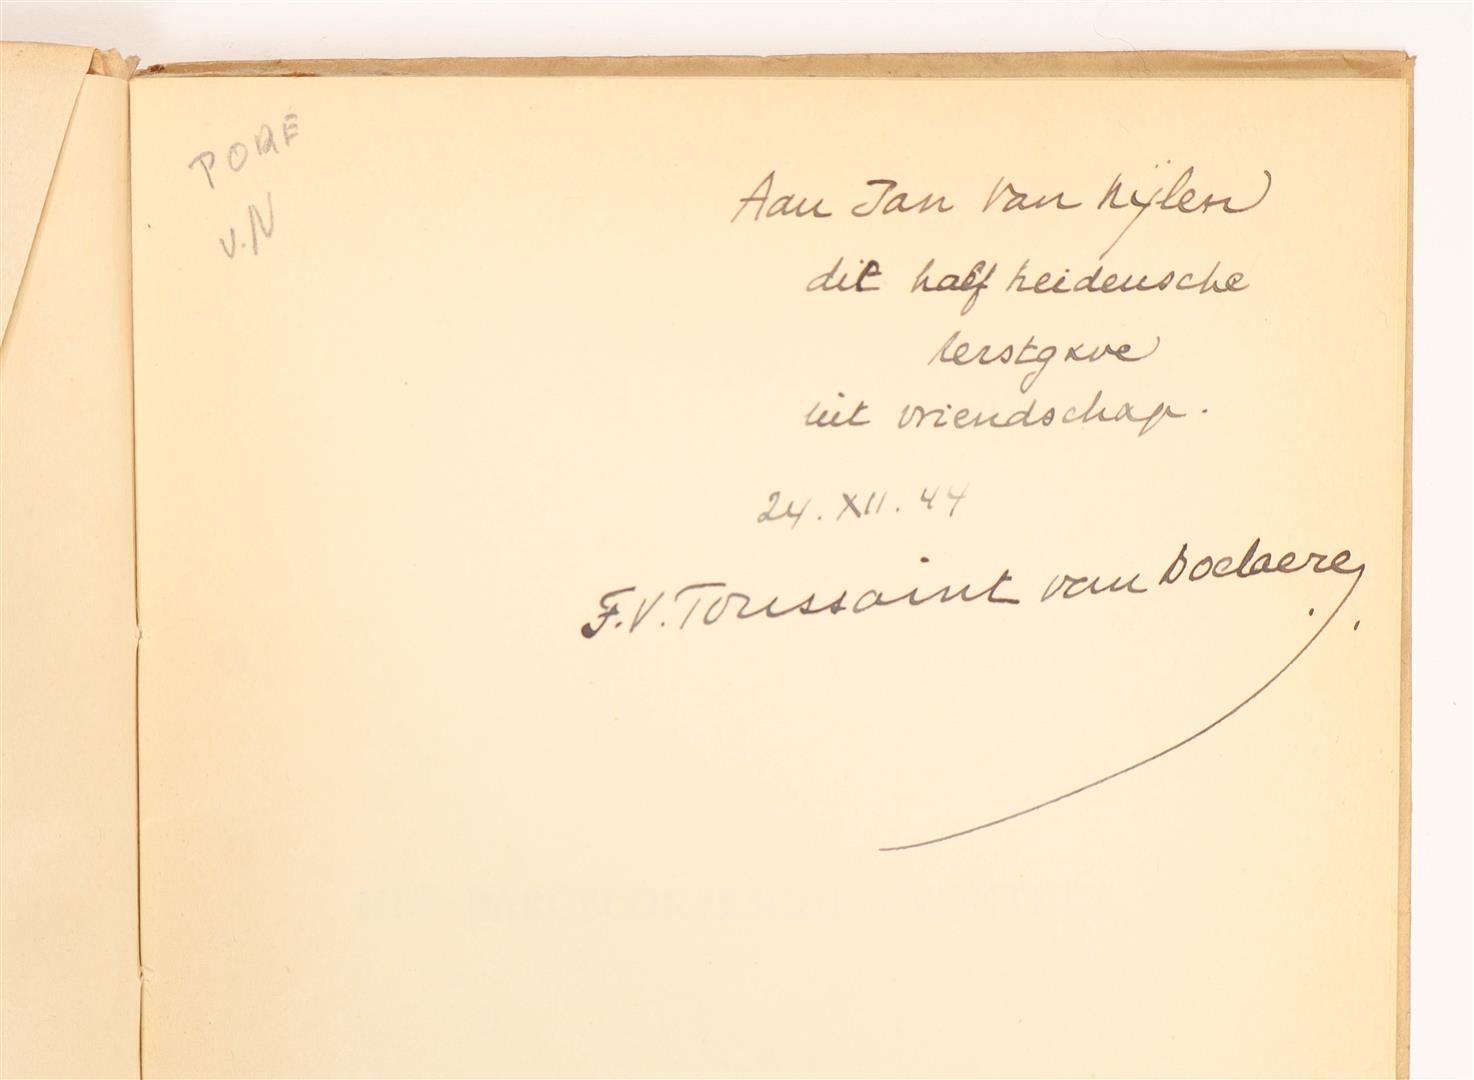 PORF
V.N
Aan Jan Van Nijlen
dit half heidensche
kerstgave
uit vriendschap.
24.XII.44
F.V. Toussaint van Boelaere